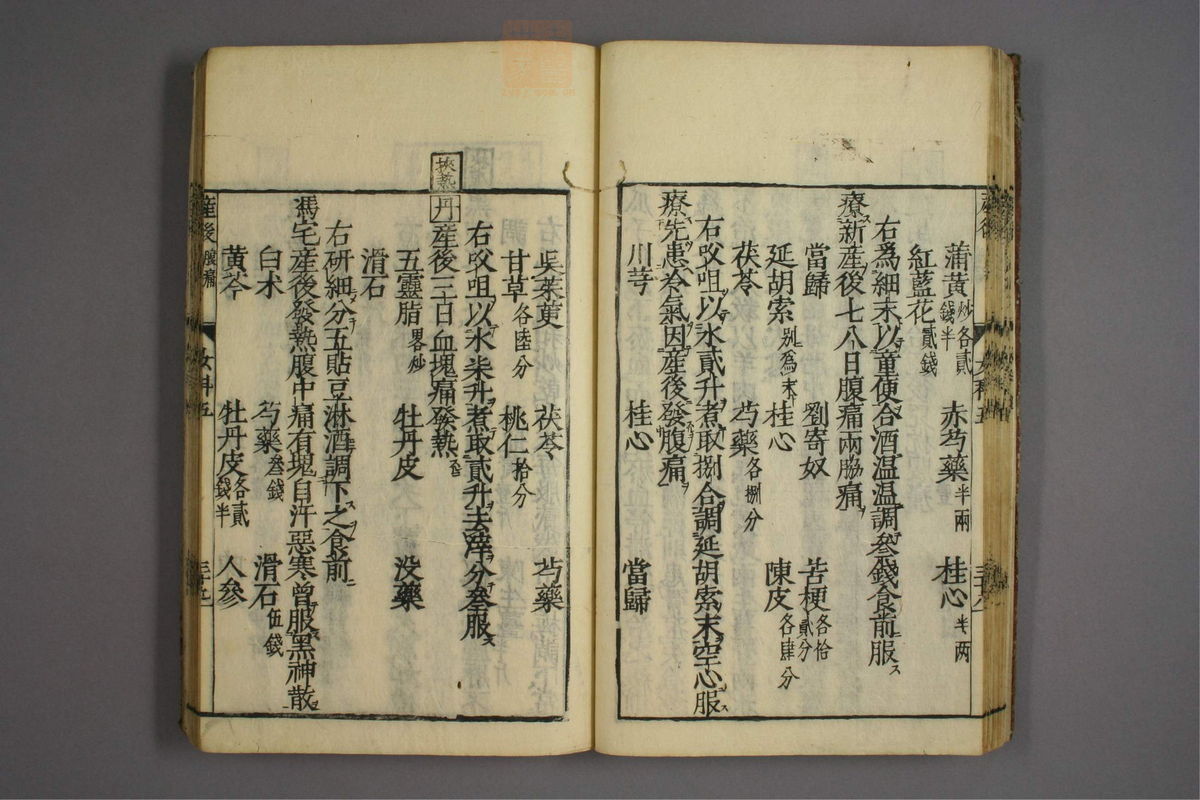 蒲黄炒各貳錢半 赤芍藥半兩 桂心半两
紅藍花貳錢
右爲細末以童便合酒温温調叄錢食前服ス
療新産後七八日腹痛兩脇痛
當歸 劉寄奴 苦梗各拾貳分
延胡索別爲末 桂心 陳皮各肆分
茯苓 芍藥各捌分
右㕮咀以水貳升煮取捌合調延胡索末空心服ス
療先患冷氣因産後發腹痛
川芎 桂心 當歸
呉茱萸 茯苓 芍藥
甘草各陸分 桃仁拾分
右㕮咀以水柒升煮取貳升去滓分叄服ス
挾熱
丹産後三日血塊痛發熱
五靈脂畧炒 牡丹皮 没藥
滑石
右研細分五貼豆淋酒調下之食前
馮宅産後發熱腹中痛有塊自汗惡寒曾服黑神散
白术 芍藥叄錢 滑石伍錢
黄芩 牡丹皮各貳錢半 人參
産後腹痛 女科五